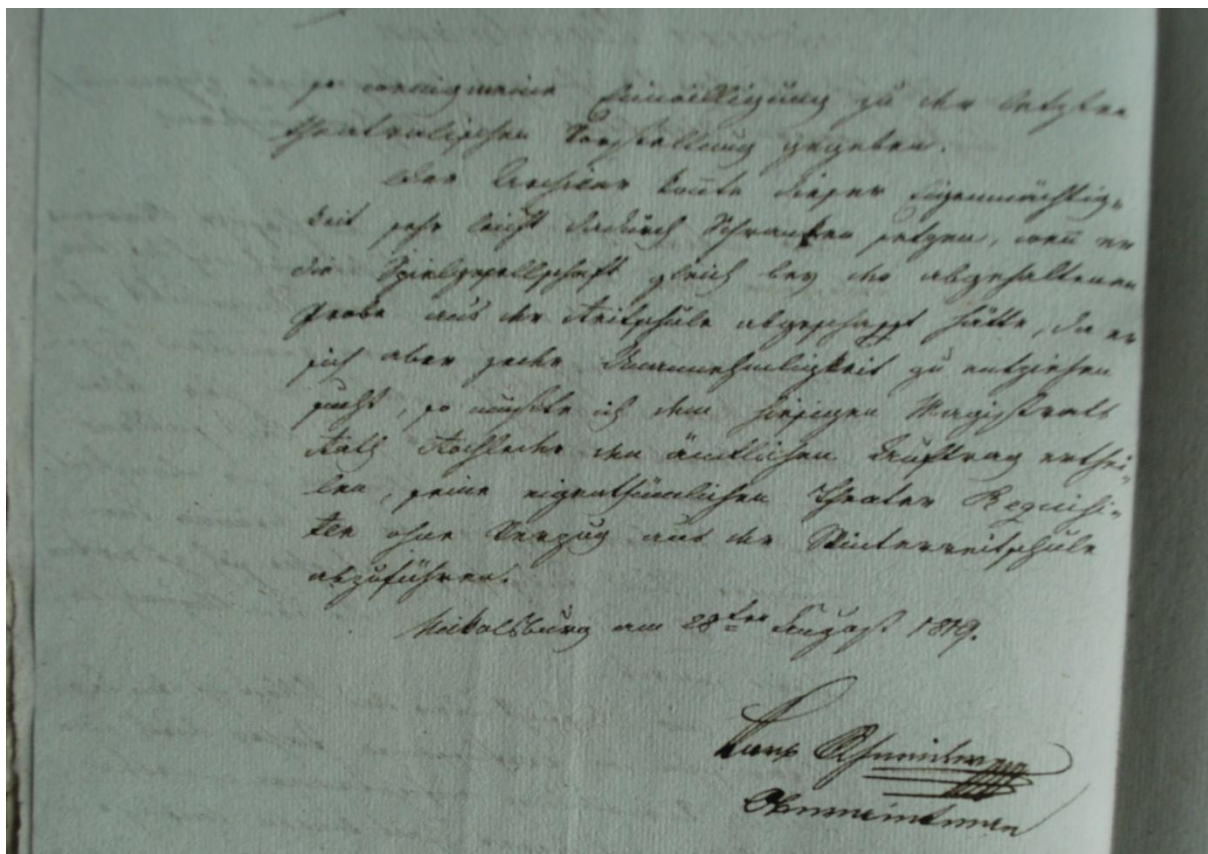 so wenig meine Einwilligung zu der letzten
theatralischen Vorstellung gegeben.
Der kon̄te dieser Eigenmächtig-
keit sehr leicht dadurch Schranken setzen, wen̄ er
die Spielgesellschaft gleich bey der abgehaltenen
Probe aus der Reitschule abgeschafft hätte, da er
sich aber jeder Unannehmlichkeit zu entziehen
sucht, so mußte ich dem hiesigen Magistrats
Rath den ämtlichen Auftrag erthei-
len, seine eigenthümlichen Theater Requisi-
ten ohne Verzug aus der Winterreitschule
abzuführen.
Nikolsburg am 28ten August 1819.